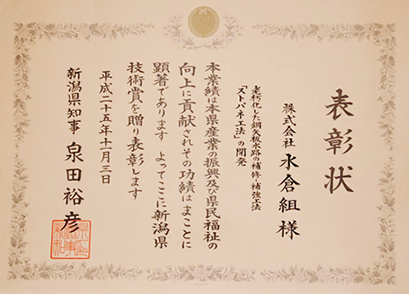 表彰状
株式会社 水倉組 様
老朽化した鋼矢板水路の補修・補強工法
「ストパネ工法」の開発
本業績は本県産業の振興及び県民福祉の
向上に貢献されその功績はまことに
顕著であります よってここに新潟県
技術賞を贈り表彰します
平成二十五年十一月三日
新潟県知事 泉田裕彦